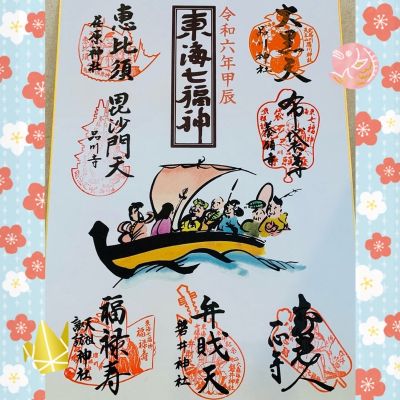 令和六年甲辰
東海七福神
大黒天
品川神社
布袋尊
養願寺
寿老人
一心寺
恵比須
荏原神社
毘沙門天
品川寺
福禄寿
天祖諏訪神社
弁財天
磐井神社